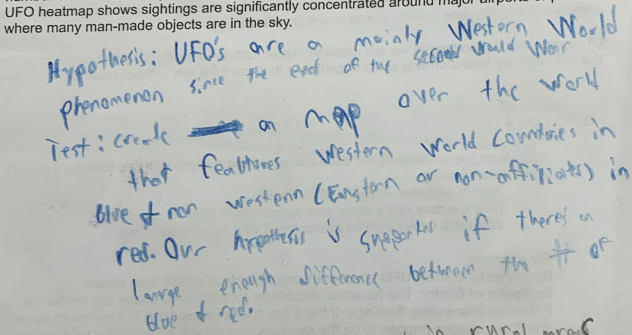 UFO heatmap shows sightings are significantly concentrated around major airports or
where many man-made objects are in the sky.
Hypothesis: UFO's are a mainly Western World
phenomenon since the end of the second World War
Test: create a map over the world
that features Western World Countries in
blue & non western (Eastern or non-affiliats) in
red. Our hypothesis is supported if there's a
large enough difference between the # of
blue & red.
in rural areas